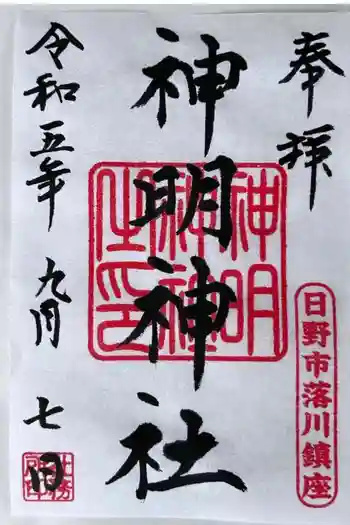 奉拝
日野市落川鎮座
神明神社
神明神社之印
令和五年 九月 七日